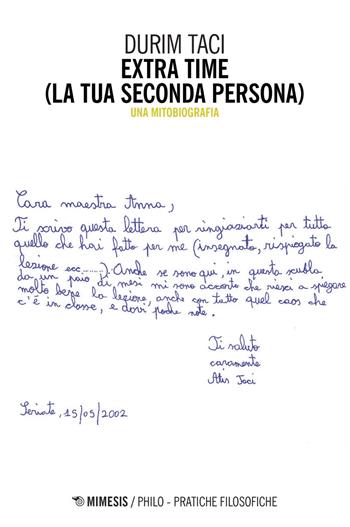 DURIM TACI
EXTRA TIME
(LA TUA SECONDA PERSONA)
UNA MITOBIOGRAFIA
Cara maestra Anna,
Ti scrivo questa lettera per ringraziarti per tutto
quello che hai fatto per me (insegnato, rispiegato la
lezione ecc........). Anche se sono qui, in questa scuola
da un paio di mesi mi sono accorto che riesci a spiegare
molto bene la lezione, anche con tutto quel caos che
c'è in classe, e dovi poche note.
Ti saluto
caramente
Atis Taci
Seriate, 15/05/2002
MIMESIS / PHILO - PRATICHE FILOSOFICHE